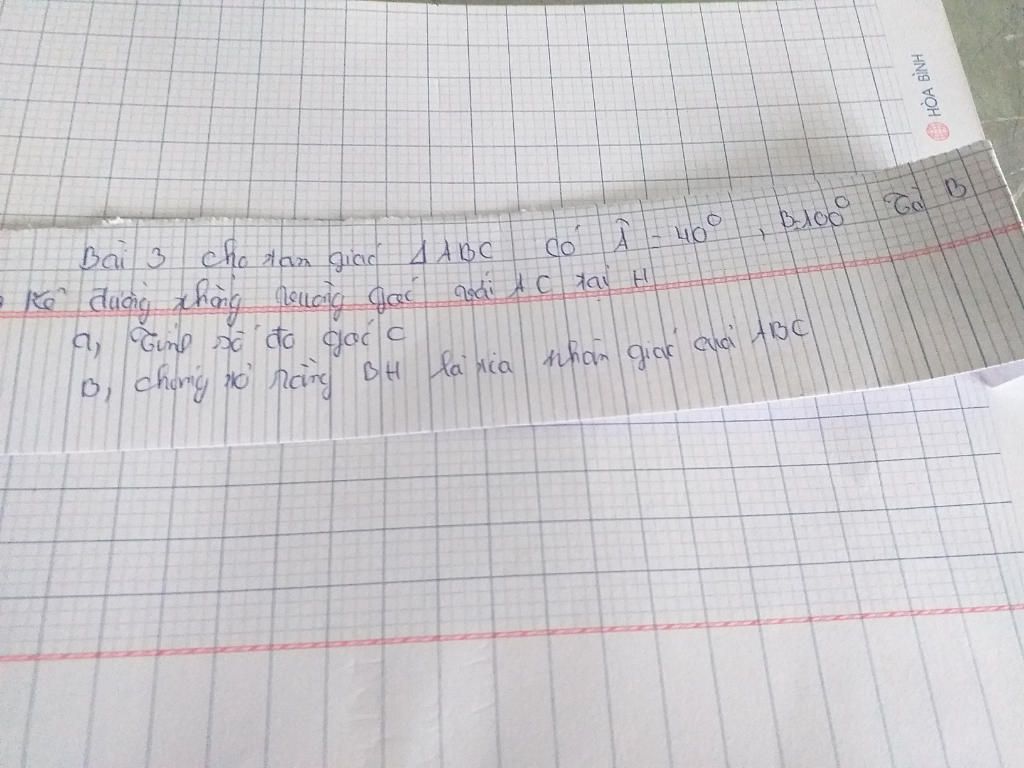 HÒA BÌNH
Bài 3 cho tam giác ΔABC có Â = 40°, B=100° Từ B
Kẻ đường thẳng vuông góc với AC tại H
a, Tính số đo góc C
B, chứng tỏ rằng BH là tia phân giác của ABC